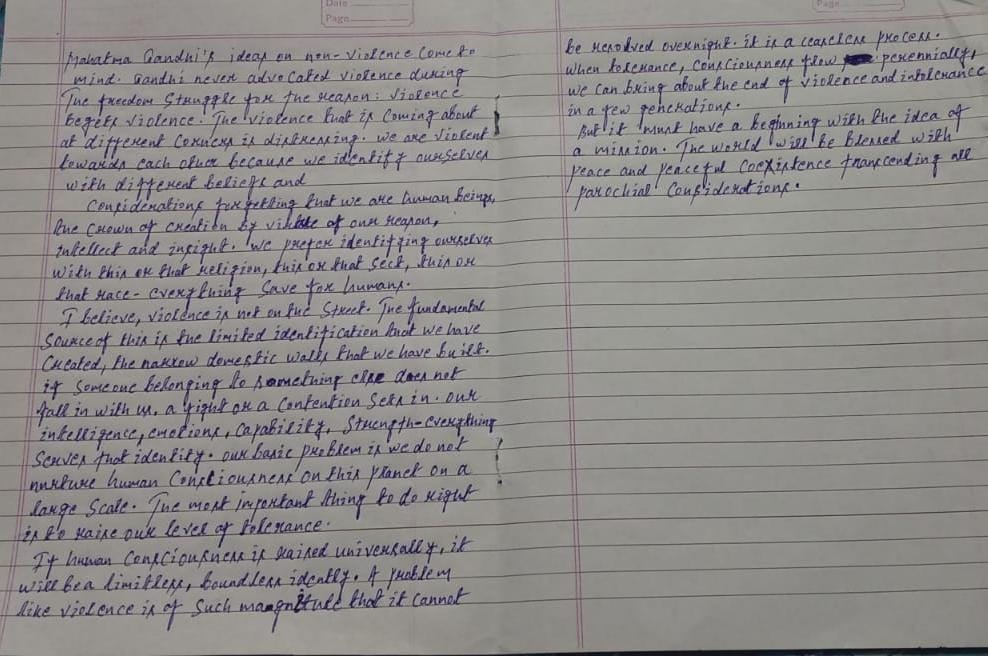 Date
Page
Mahatma Gandhi's ideas on non-violence come to
mind. Gandhi never advocated violence during
The freedom struggle for the reason: violence
begets violence. The violence that is coming about
at different corners is distressing. we are violent
towards each other because we identify ourselves
with different beliefs and
Considerations forgetting that we are human beings,
the crown of creation by virtue of our reason,
intellect and insight. We prefer identifying ourselves
with this or that religion, this or that sect, this or
that race - everything save for humans.
I believe, violence is not on the street. The fundamental
source of this is the limited identification that we have
created, the narrow domestic walls that we have built.
if someone belonging to something else does not
fall in with us, a fight or a contention sets in. our
intelligence, emotions, capability, strength-everything
serves that identity. our basic problem is we do not
nurture human consciousness on this planet on a
large scale. The most important thing to do right
is to raise our level of tolerance.
If human consciousness is raised universally, it
will be a limitless, boundless identity. A problem
like violence is of such magnitude that it cannot
Page
be resolved overnight. it is a ceaseless process.
when tolerance, consciousness flow perennially,
we can bring about the end of violence and intolerance
in a few generations.
But it must have a beginning with the idea of
a mission. The world will be blessed with
peace and peaceful coexistence transcending all
parochial considerations.